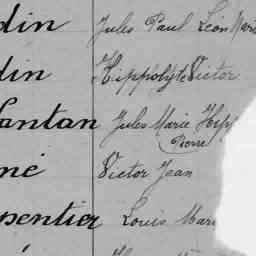 din Jules Paul Léon Marie
din Hippolyte Victor
antan Jules Marie Hipp
(Pierre)
né Victor Jean
pentier Louis Mari